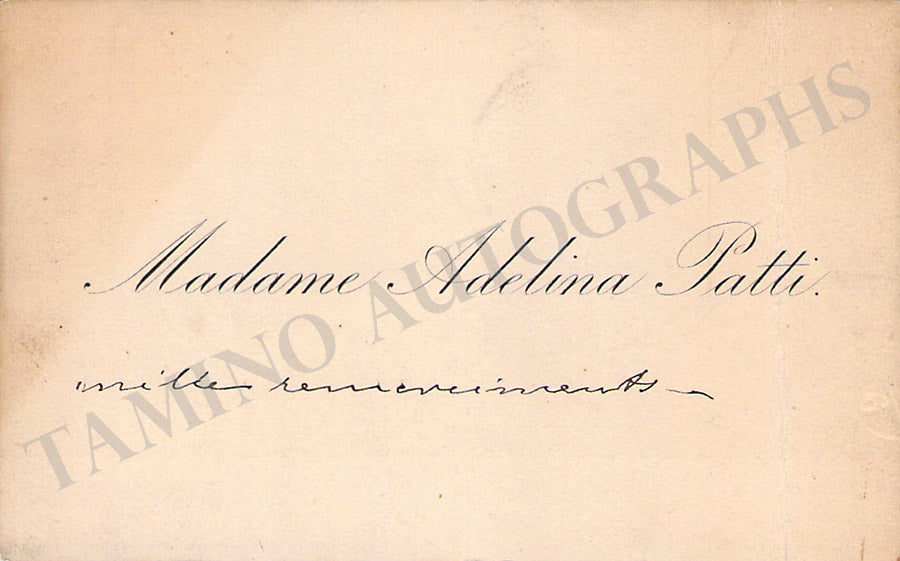 Madame Adelina Patti.
mille remerciements
TAMINO AUTOGRAPHS